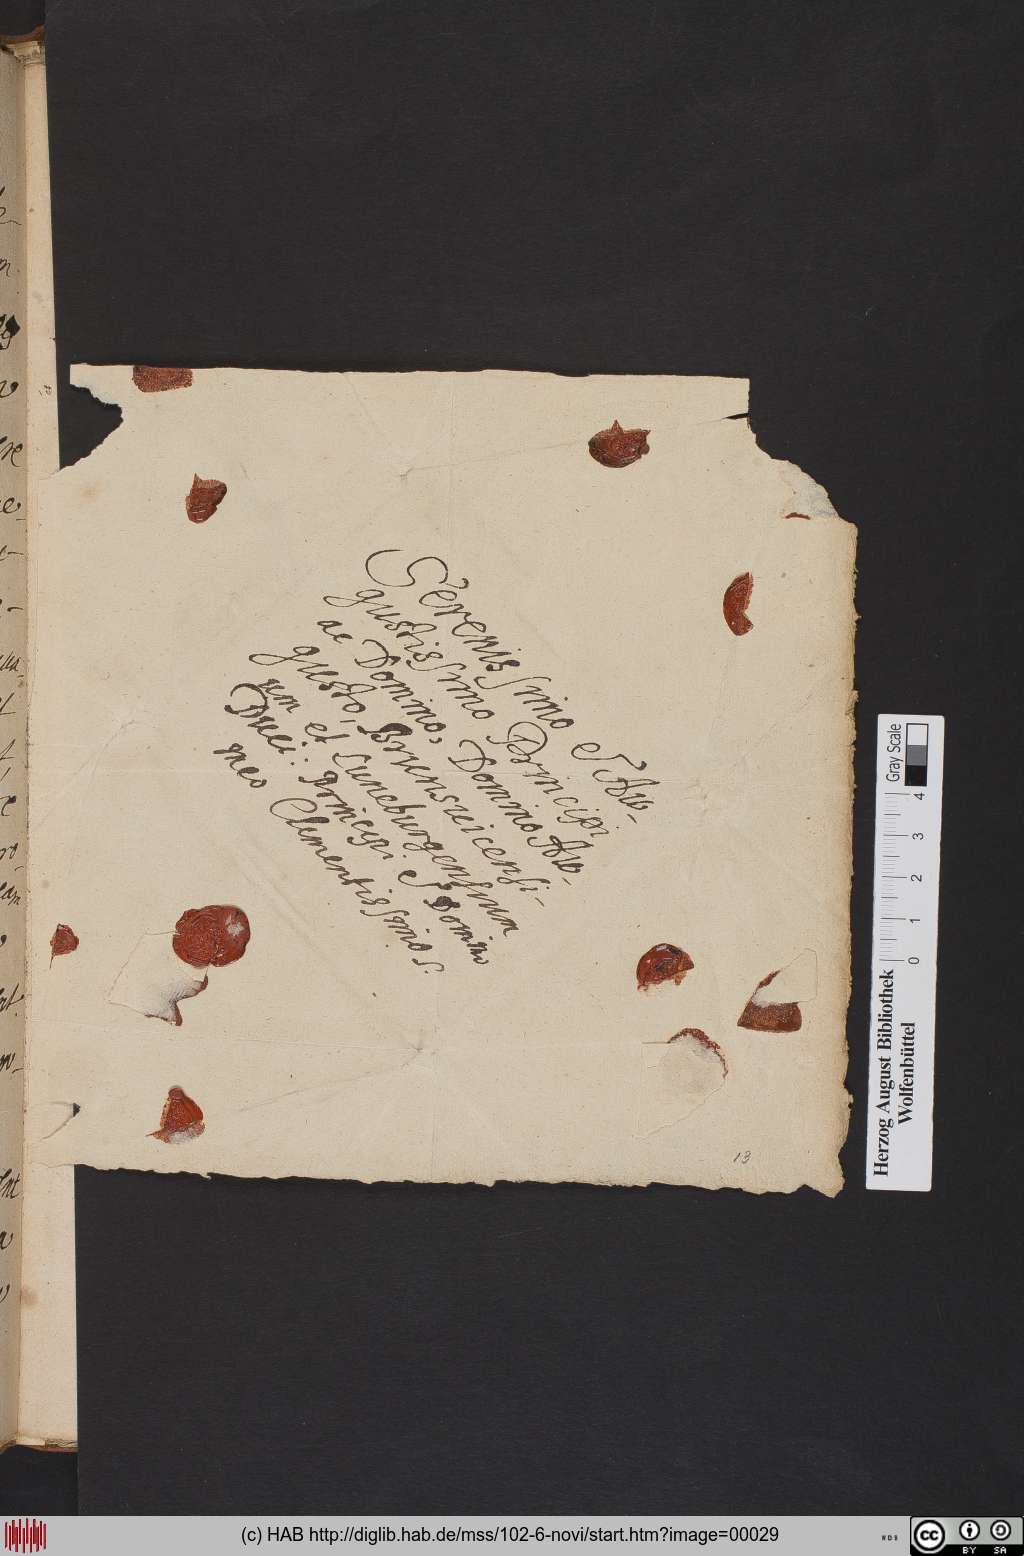 Serenissimo et Au-
gustissimo Principi
ac Domino, Domino Au-
gusto, Brunsvicensi-
um et Luneburgensium
Duci. Principi et Domino
meo Clementissimo.
13
Gray Scale
0 1 2 3 4
Herzog August Bibliothek
Wolfenbüttel
(c) HAB http://diglib.hab.de/mss/102-6-novi/start.htm?image=00029
WDB
cc BY SA